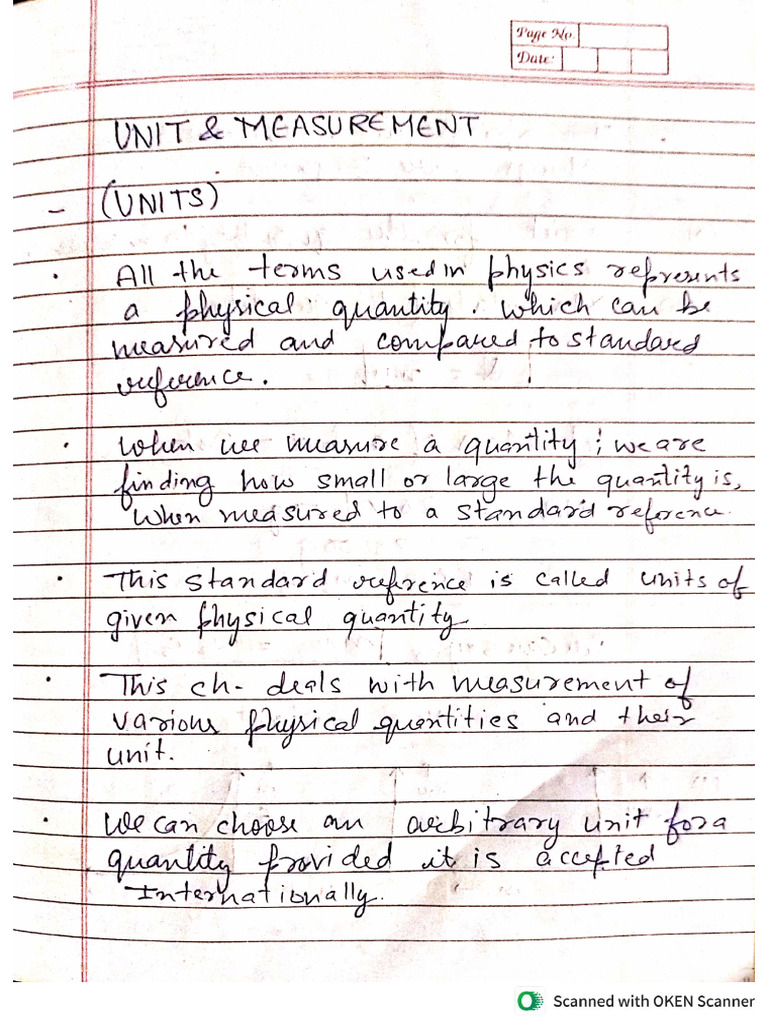 Page No.
Date:
UNIT & MEASUREMENT
- (UNITS)
· All the terms used in physics represents
a physical quantity. which can be
measured and compared to standard
reference.
· When we measure a quantity ; we are
finding how small or large the quantity is,
when measured to a standard reference.
· This standard reference is called units of
given physical quantity
· This ch- deals with measurement of
various physical quantities and their
unit.
· We can choose an arbitrary unit for a
quantity provided it is accepted
Internationally.
Scanned with OKEN Scanner